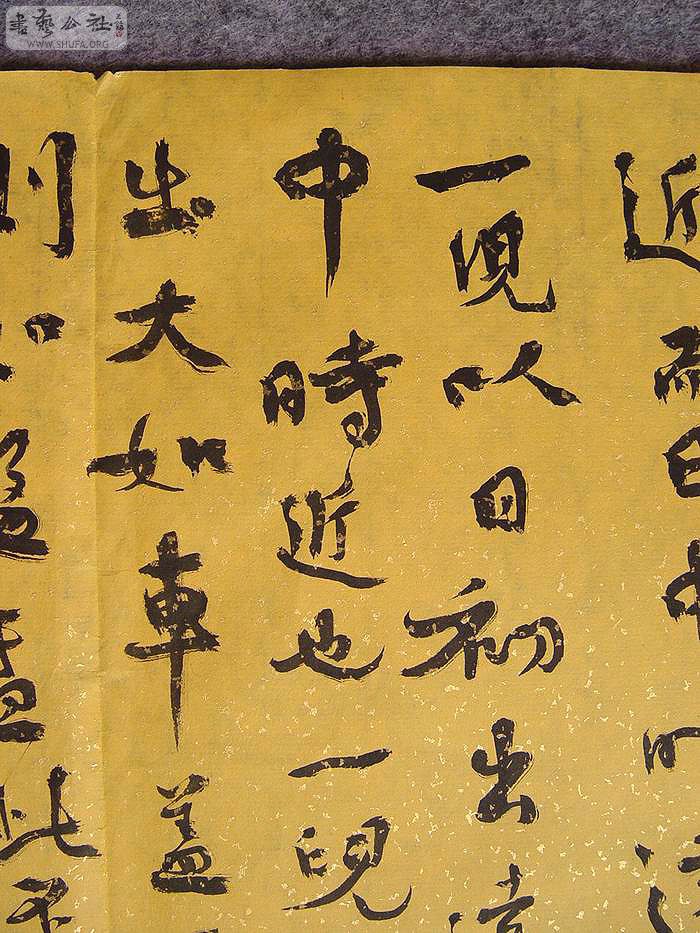 書藝公社
WWW.SHUFA.ORG
近而日中時遠
一兒以日初出遠
中時近也一兒
出大如車蓋
則如盤盂此不